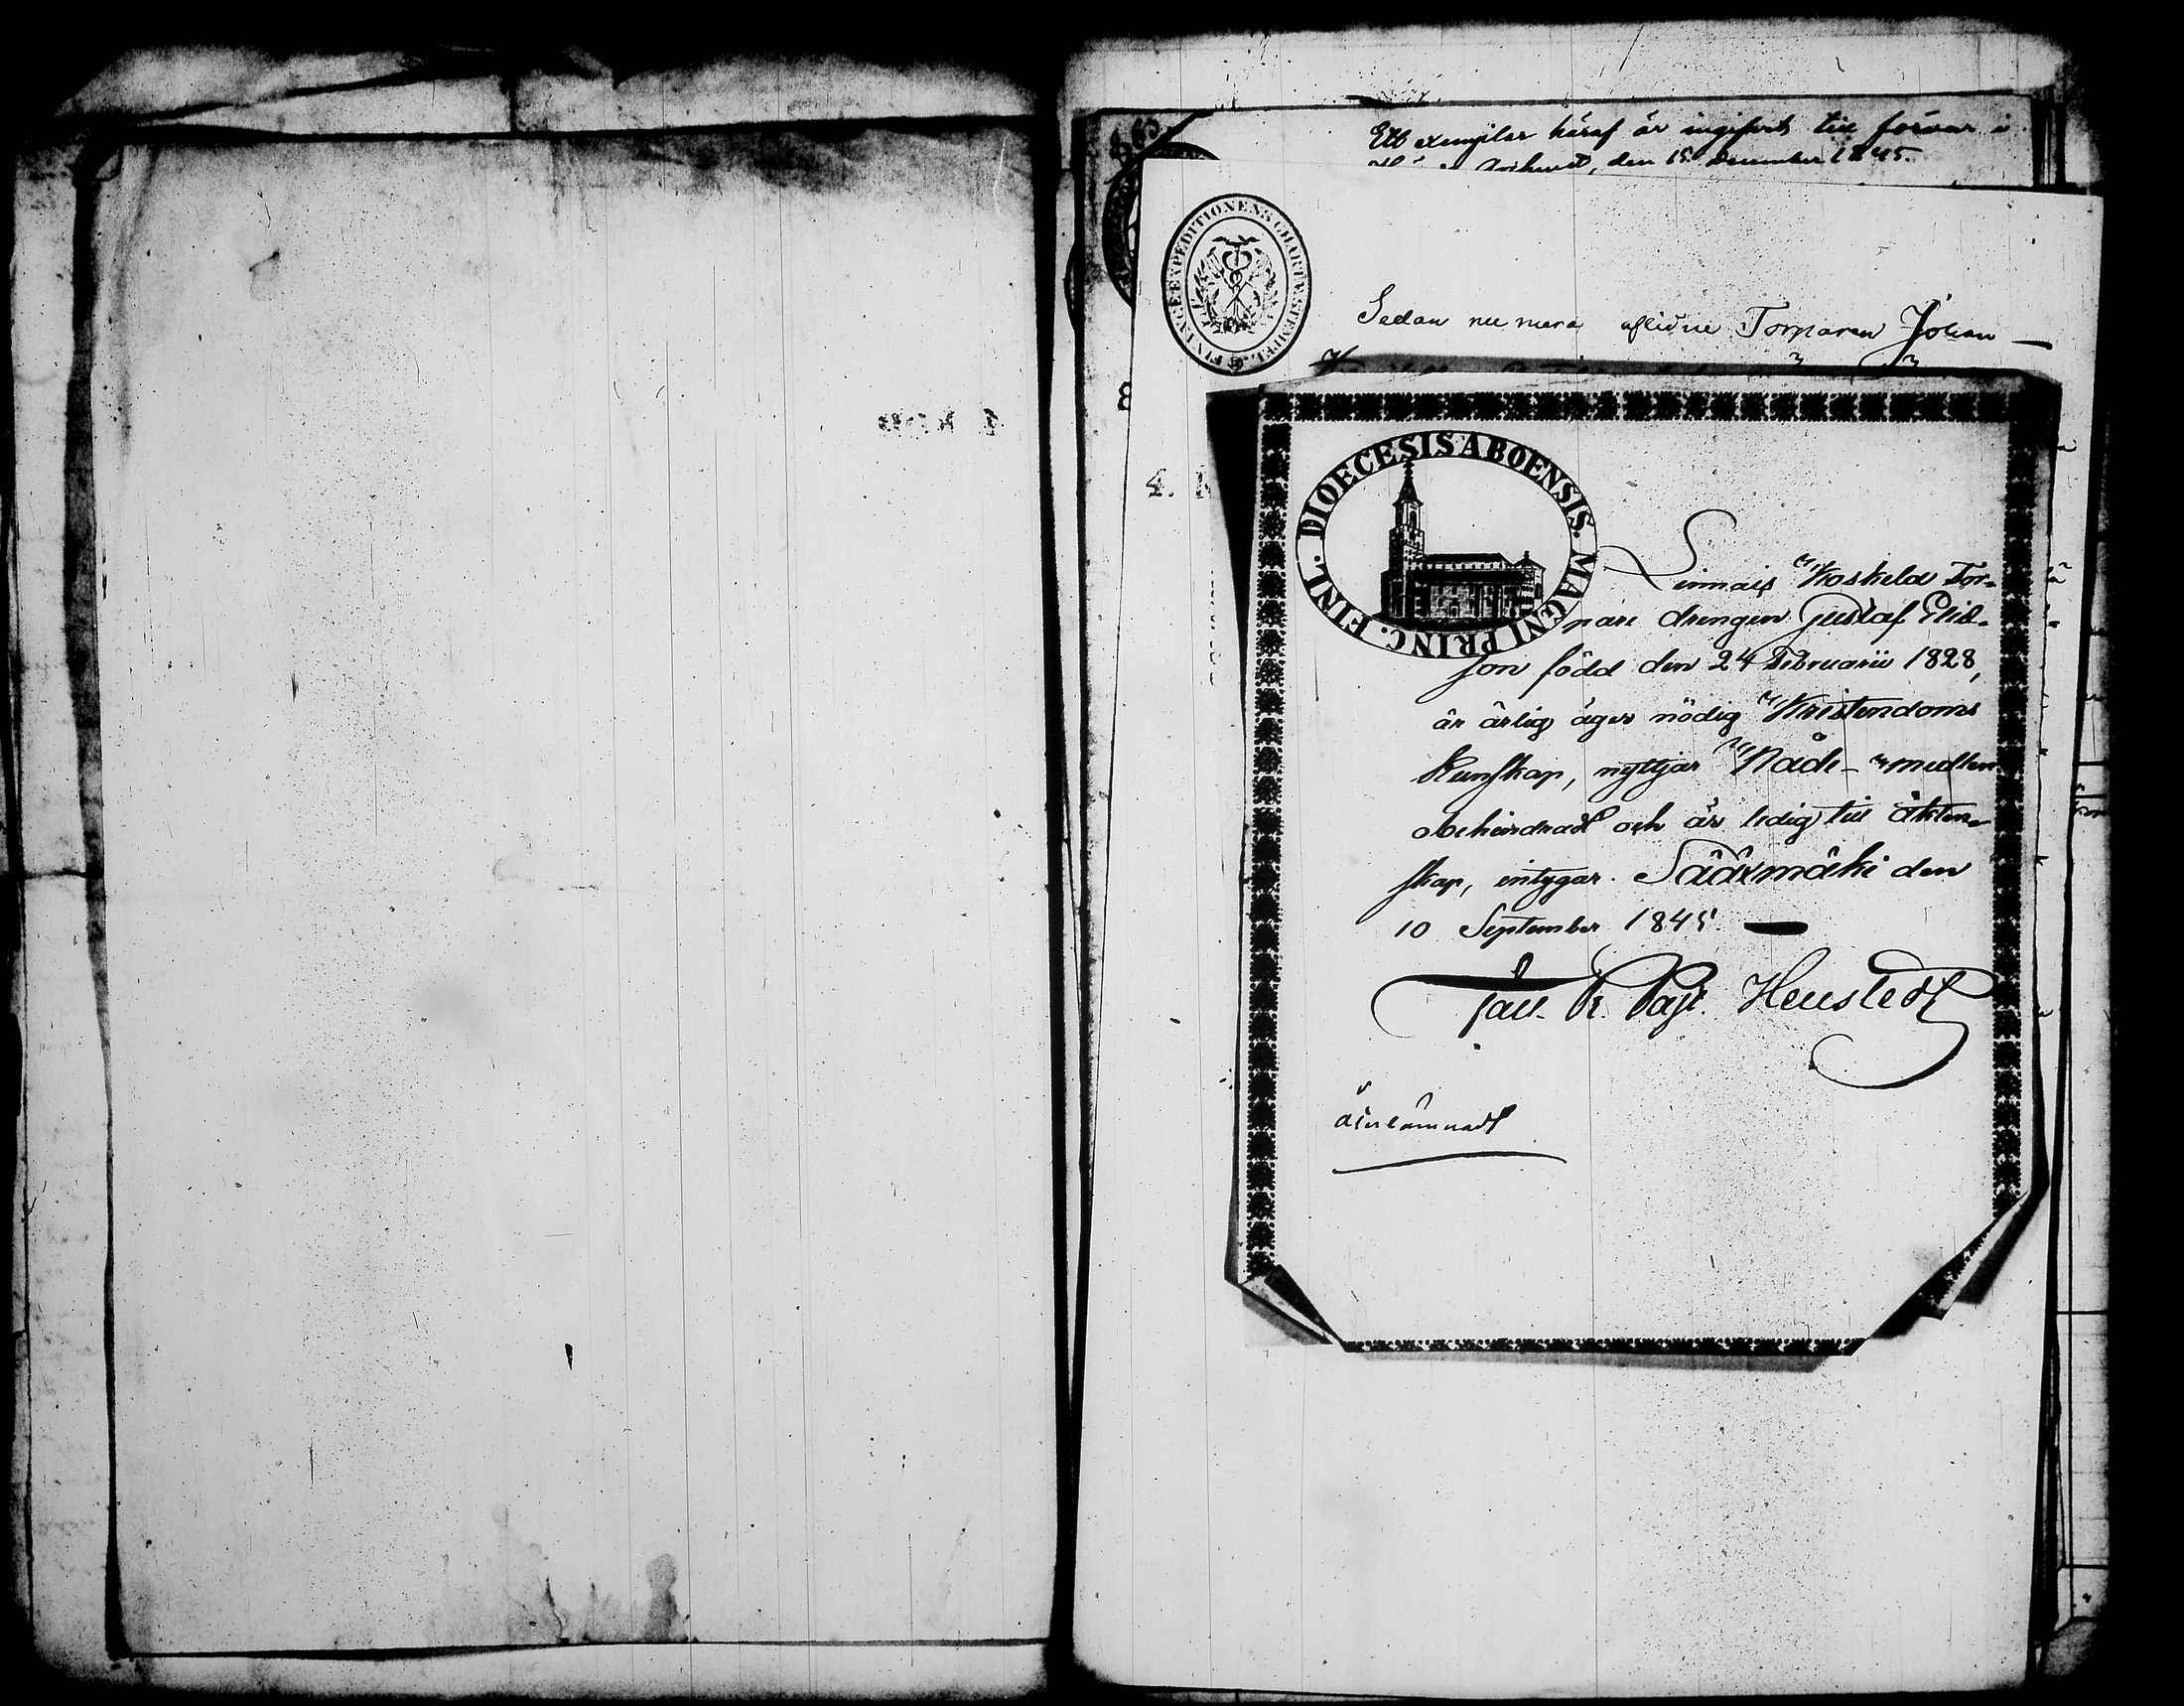 Ett exemplar häraf är ingifvit till förvar i
den 15 December 1845.
FINANCE EXPEDITIONENS CHARTÆ STEMPEL.
Sedan nu mera aflidne Torparen Johan
4.
DIOECESIS ABOENSIS. MAGNI PRINC. FINL.
Linnais Koskela Tor-
pare drengen Gustaf Elis-
son född den 24 Februarii 1828,
är ärlig äger nödig Kristendoms
kunskap, nyttjar Nåde-medlen
obehindradt och är ledig till äkten-
skap, intygar. Sääxmäki den
10 September 1845.
Past. Henstedt
återlämnadt